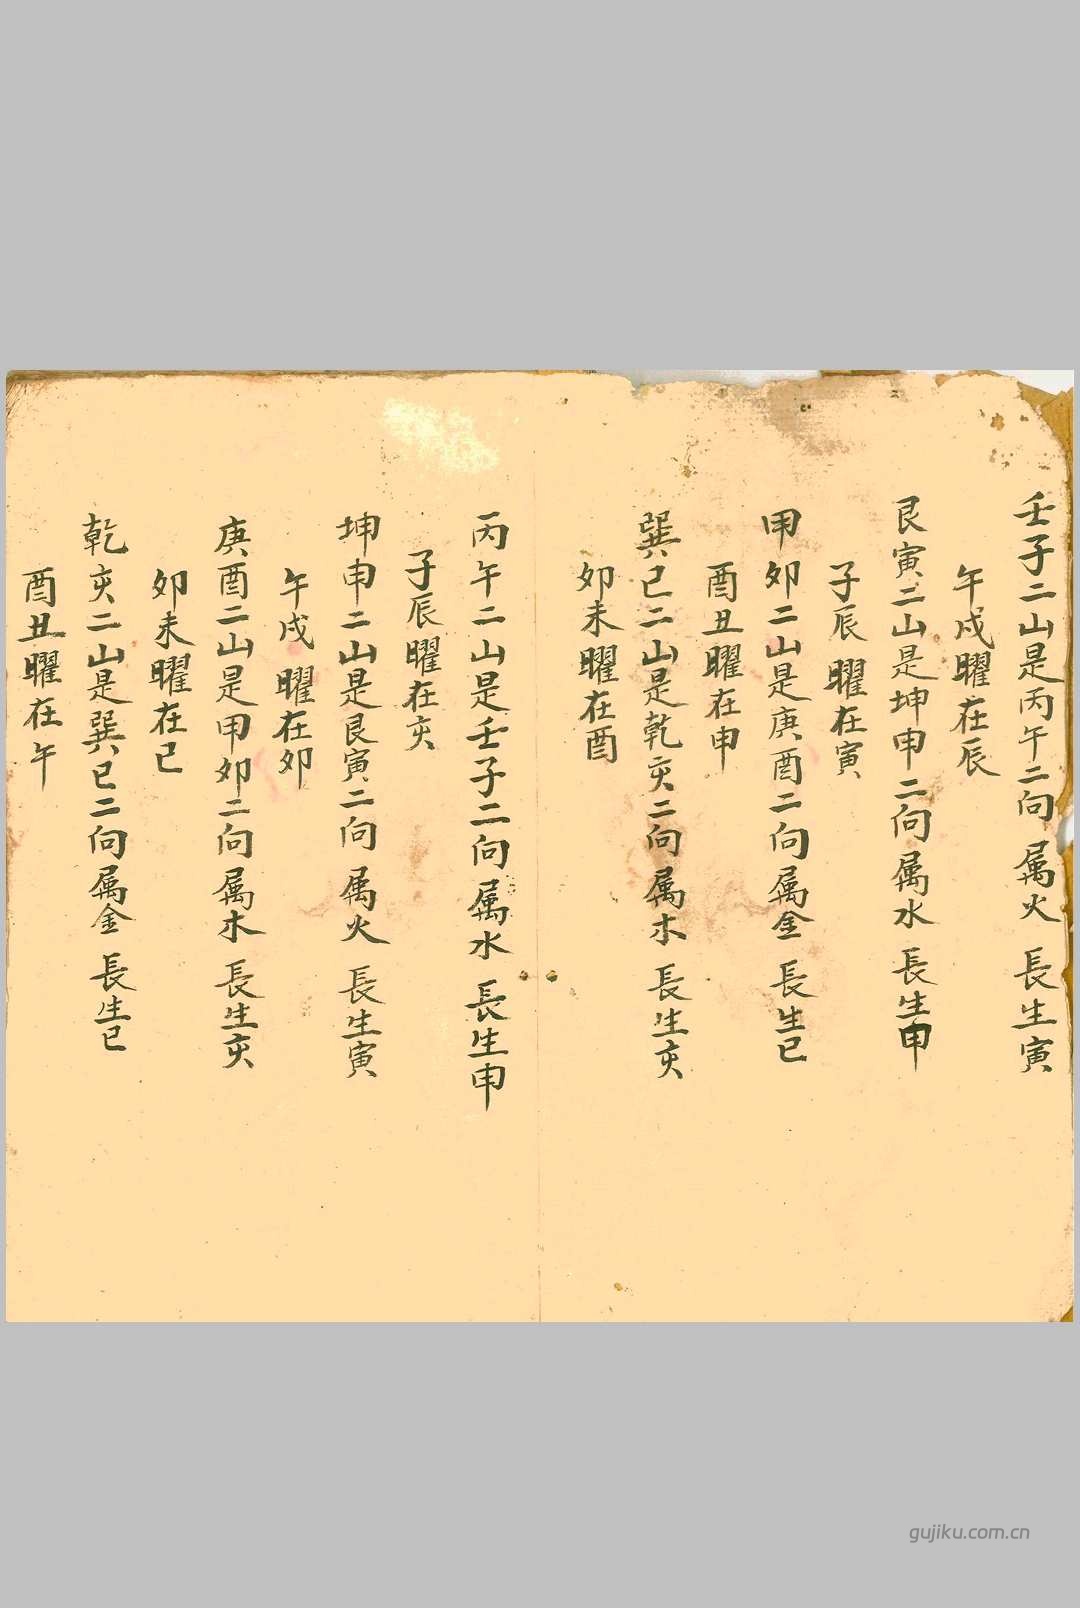 壬子二山是丙午二向属火長生寅
午戌曜在辰
艮寅二山是坤申二向属水長生申
子辰曜在寅
甲卯二山是庚酉二向属金長生巳
酉丑曜在申
巽巳二山是乾亥二向属木長生亥
卯未曜在酉
丙午二山是壬子二向属水長生申
子辰曜在亥
坤申二山是艮寅二向属火長生寅
午戌曜在卯
庚酉二山是甲卯二向属木長生亥
卯未曜在巳
乾亥二山是巽巳二向属金長生巳
酉丑曜在午
gujiku.com.cn